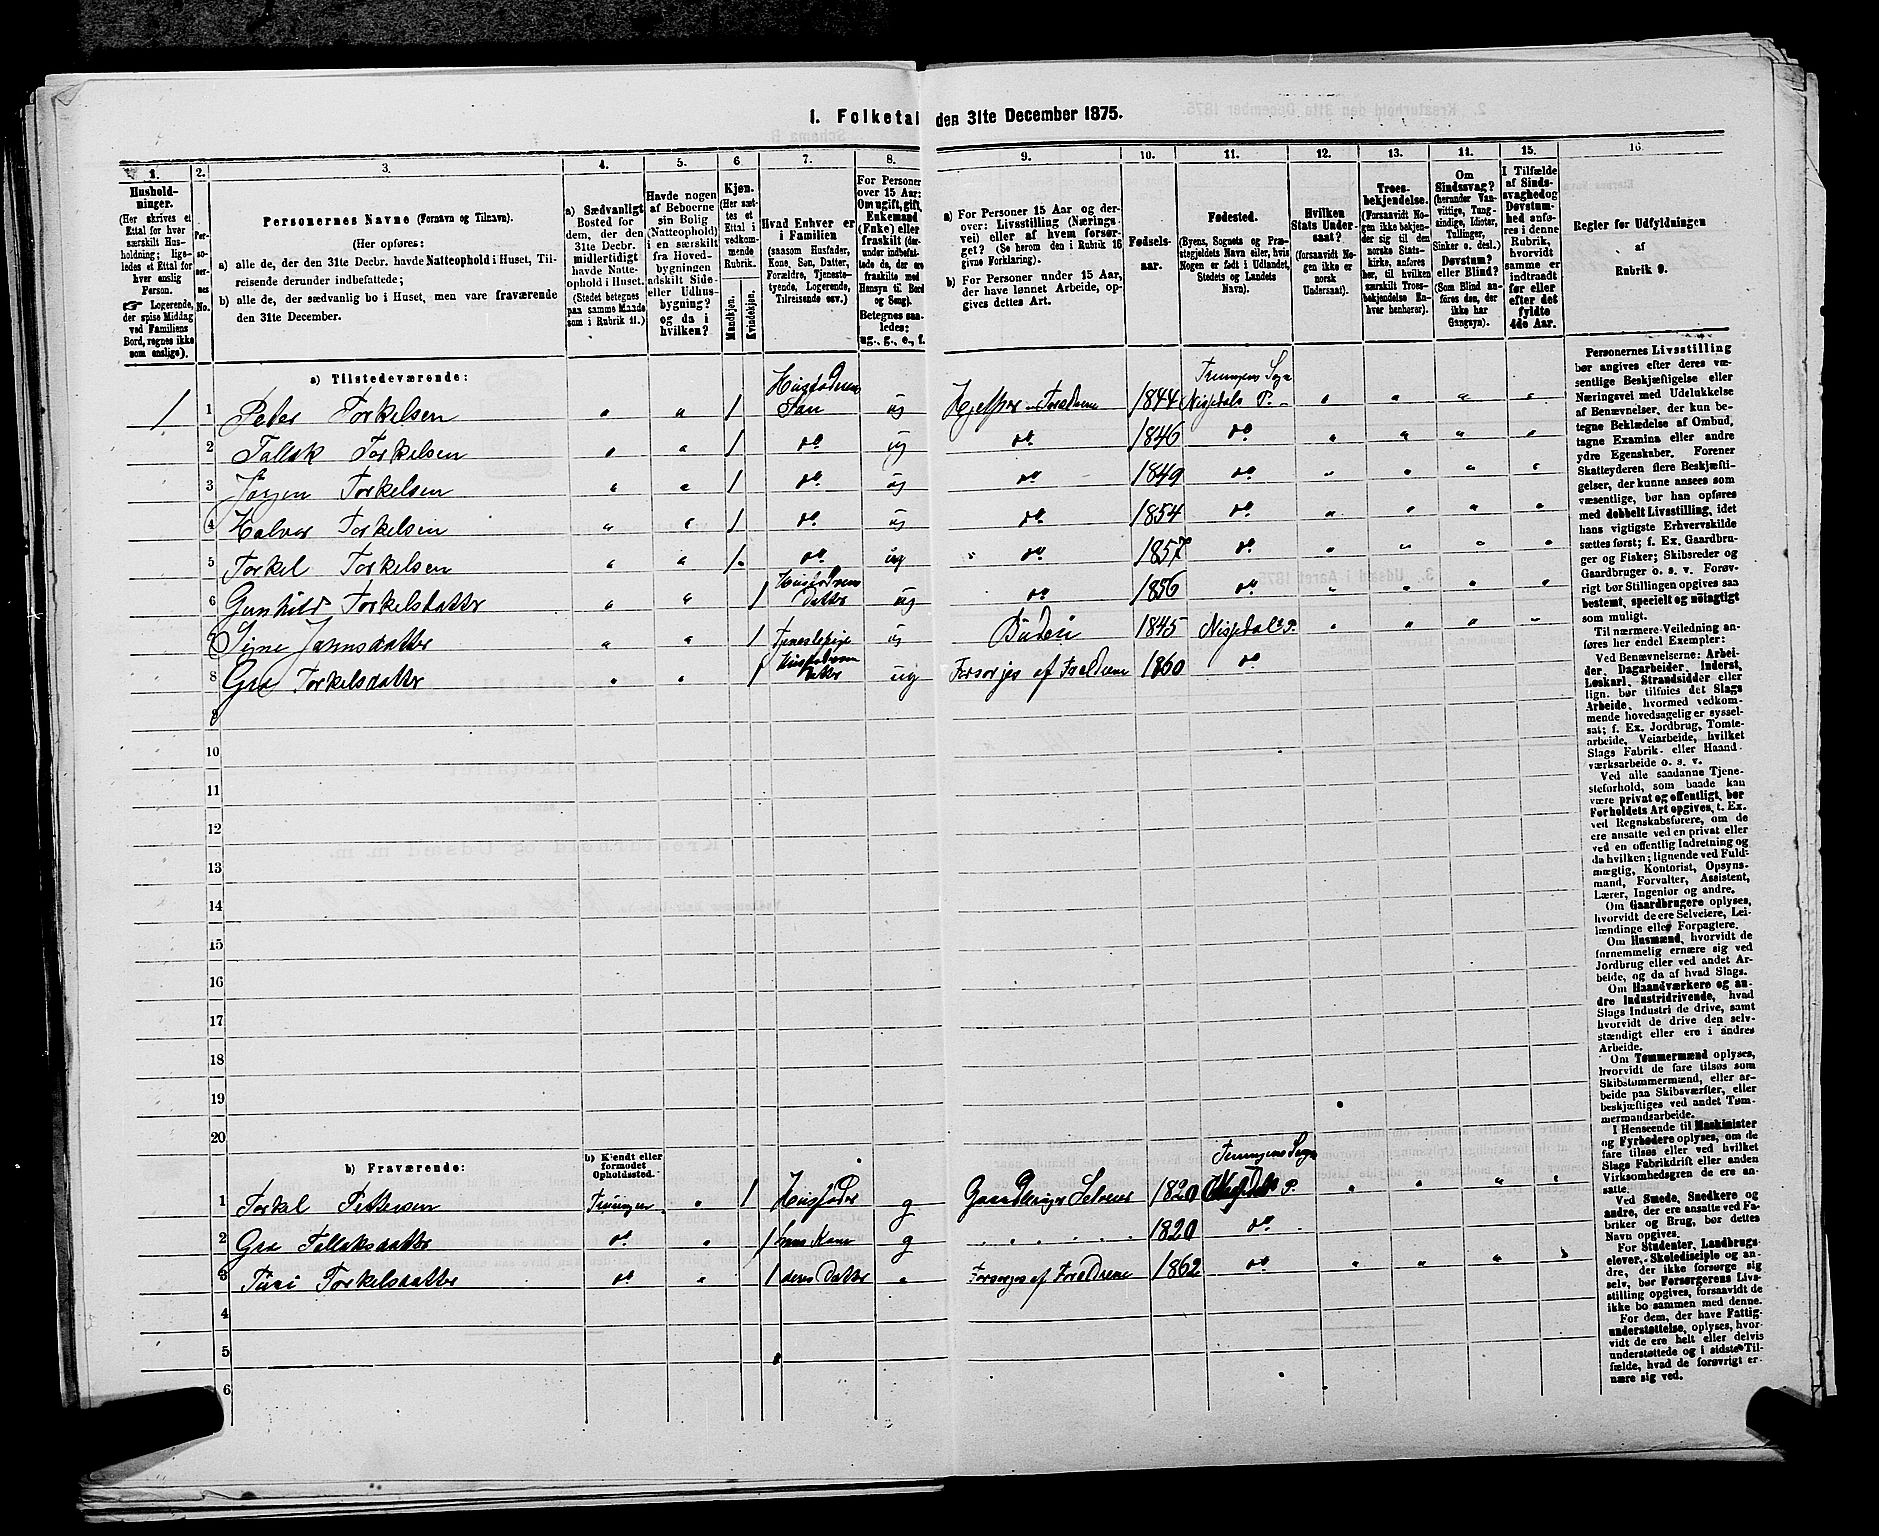 1. Folketal den 31te December 1875.
1.
Hushold-
ninger.
(Her skrives et
Ettal for hver
særskilt Hus-
holdning; lige-
ledes et Ettal for
hver enslig
Person.
☞ Logerende,
der spise Middag
ved Familiens
Bord, regnes ikke
som enslige).
2.
Per-
so-
ner-
nes
No.
3.
Personernes Navne (Fornavn og Tilnavn).
(Her opføres:
a) alle de, der den 31te Decbr. havde Natteophold i Huset, Til-
reisende derunder indbefattede;
b) alle de, der sædvanlig bo i Huset, men vare fraværende
den 31te December.
4.
a) Sædvanligt
Bosted for
dem, der den
31te Decbr.
midlertidigt
havde Natte-
ophold i Huset.
(Stedet betegnes
paa samme Maade
som i Rubrik 11.)
5.
Havde nogen
af Beboerne
sin Bolig
(Natteophold)
i en særskilt
fra Hoved-
bygningen
adskilt Side-
eller Udhus-
bygning?
og da i
hvilken?
6.
Kjøn.
(Her sæt-
tes et
Ettal i
vedkom-
mende
Rubrik.
Mandkjøn.
Kvindekjøn.
7.
Hvad Enhver er
i Familien
(saasom Husfader,
Kone, Søn, Datter,
Forældre, Tjeneste-
tyende, Logerende,
Tilreisende osv.)
8.
For Personer
over 15 Aar:
Om ugift, gift,
Enkemand
(Enke) eller
fraskilt (der-
under indbefat-
tede de, der ere
fraskilte med
Hensyn til Bord
og Seng).
Betegnes saa-
ledes:
ug., g., e., f.
9.
a) For Personer 15 Aar og der-
over: Livsstilling (Nærings
vei) eller af hvem forsør-
get? (Se herom den i Rubrik 16
givne Forklaring).
b) For Personer under 15 Aar,
der have lønnet Arbeide, op-
gives dettes Art.
10.
Fødsels-
aar.
11.
Fødested.
(Byens, Sognets og Præ-
stegjeldets Navn eller, hvis
Nogen er født i Udlandet,
Stedets og Landets
Navn).
12.
Hvilken
Stats Under-
saat?
(forsaavidt No-
gen ikke er
norsk
Undersaat).
13.
Troes-
bekjendelse.
(Forsaavidt No-
gen ikke bekjen-
der sig til den
norske Stats-
kirke, anføres
her, til hvilken
særskilt Troes-
bekjendelse En-
hver henhører).
14.
Om
Sindssvag?
(herunder Van-
vittige, Tung-
sindige, Idioter,
Tullinger,
Sinker o. desl.)
Døvstum?
eller Blind?
(Som Blind an-
føres den, der
ikke har
Gangsyn).
15.
I Tilfælde
af Sinds-
svaghed og
Døvstum-
hed anfø-
res i denne
Rubrik,
hvorvidt
samme er
indtraadt
før eller
efter det
fyldte
4de Aar.
16
Regler for Udfyldningen
af
Rubrik 9.
a) Tilstedeværende:
1 1 Peter Torkelsen 1 Husfaderens Søn ug Hjelper Forældrene 1844 Treungens Sogn Nissedals P.
2 Tallak Torkelsen 1 do ug do 1846 do
3 Jørgen Torkelsen 1 do ug do 1849 do
4 Halvor Torkelsen 1 do ug do 1854 do
5 Torkel Torkelsen 1 do ug do 1857 do
6 Gunhild Torkelsdatter 1 Husfaderens Datter ug do 1856 do
7 Signe 1 Tjenestepige ug Budeie 1845 Nissedals P.
8 Gro Torkelsdatter 1 Husfaderens Datter ug Forsørges af Forældrene 1860 do
9
10
11
12
13
14
15
16
17
18
19
20
b) Fraværende:
b) Kjendt eller
formodet
Opholdssted.
1 Torkel Pettersen Treungen 1 Husfader g Gaardbruger Selveier 1820 Treungens Sogn Nissedals P.
2 Gro Tallaksdatter do 1 hans Kone g 1820 do
3 Turi Torkelsdatter do 1 deres Datter Forsørges af Forældrene 1862 do
4
5
6
Personernes Livsstilling
bør angives efter deres væ-
sentlige Beskjæftigelse eller
Næringsvei med Udelukkelse
af Benævnelser, der kun be-
tegne Beklædelse af Ombud,
tagne Examina eller andre
ydre Egenskaber. Forener
Skatteyderen flere Beskjæfti-
gelser, der kunne ansees som
væsentlige, bør han opføres
med dobbelt Livsstilling, idet
hans vigtigste Erhvervskilde
sættes først; f. Ex. Gaardbru-
ger og Fisker; Skibsreder og
Gaardbruger o. s. v. Forøv-
rigt bør Stillingen opgives saa
bestemt, specielt og nøiagtigt
som muligt.
Til nærmere Veiledning an-
føres her endel Exempler:
Ved Benævnelserne: Arbei-
der, Dagarbeider, Inderst,
Løskarl, Strandsidder eller
lign. bør tilføies det Slags
Arbeide, hvormed vedkom-
mende hovedsagelig er syssel-
sat; f. Ex. Jordbrug, Tomte-
arbeide, Veiarbeide, hvilket
Slags Fabrik- eller Haand-
værksarbeide o. s. v.
Ved alle saadanne Tjene-
steforhold, som baade kan
være privat og offentligt, bør
Forholdets Art opgives, t. Ex.
ved Regnskabsførere, om de
ere ansatte ved en privat eller
ved en offentlig Indretning og
da hvilken; lignende ved Fuld-
mægtig, Kontorist, Opsyns-
mand, Forvalter, Assistent,
Lærer, Ingeniør og andre.
Om Gaardbrugere oplyses,
hvorvidt de ere Selveiere, Lei-
lændinge eller Forpagtere.
Om Husmænd, hvorvidt de
fornemmelig ernære sig ved
Jordbrug eller ved andet Ar-
beide, og da af hvad Slags.
Om Haandværkere og an-
dre Industridrivende, hvad
Slags Industri de drive, samt
hvorvidt de drive den selv-
stændigt eller ere i andres
Arbeide.
Om Tømmermænd oplyses,
hvorvidt de fare tilsøs som
Skibstømmermænd, eller ar-
beide paa Skibsværfter, eller
beskjæftiges ved andet Tøm-
mermandsarbeide.
I Henseende til Maskinister
og Fyrbødere oplyses, om de
fare tilsøs eller ved hvilket
Fabrikdrift eller anden
Virksomhedsgren de ere an-
satte.
Ved Smede, Snedkere og
andre, der ere ansatte ved Fa-
briker og Brug, bør dettes
Navn opgives.
For Studenter, Landbrugs-
elever, Skoledisciple og an-
dre, der ikke forsørge sig
selv, bør Forsørgerens Livs-
stilling opgives, forsaavidt de
ikke bo sammen med denne.
For dem, der have Fattig-
understøttelse, oplyses, hvor-
vidt de ere helt eller delvis
understøttede og i sidste Til-
fælde, hvad de forøvrigt er-
nære sig ved.